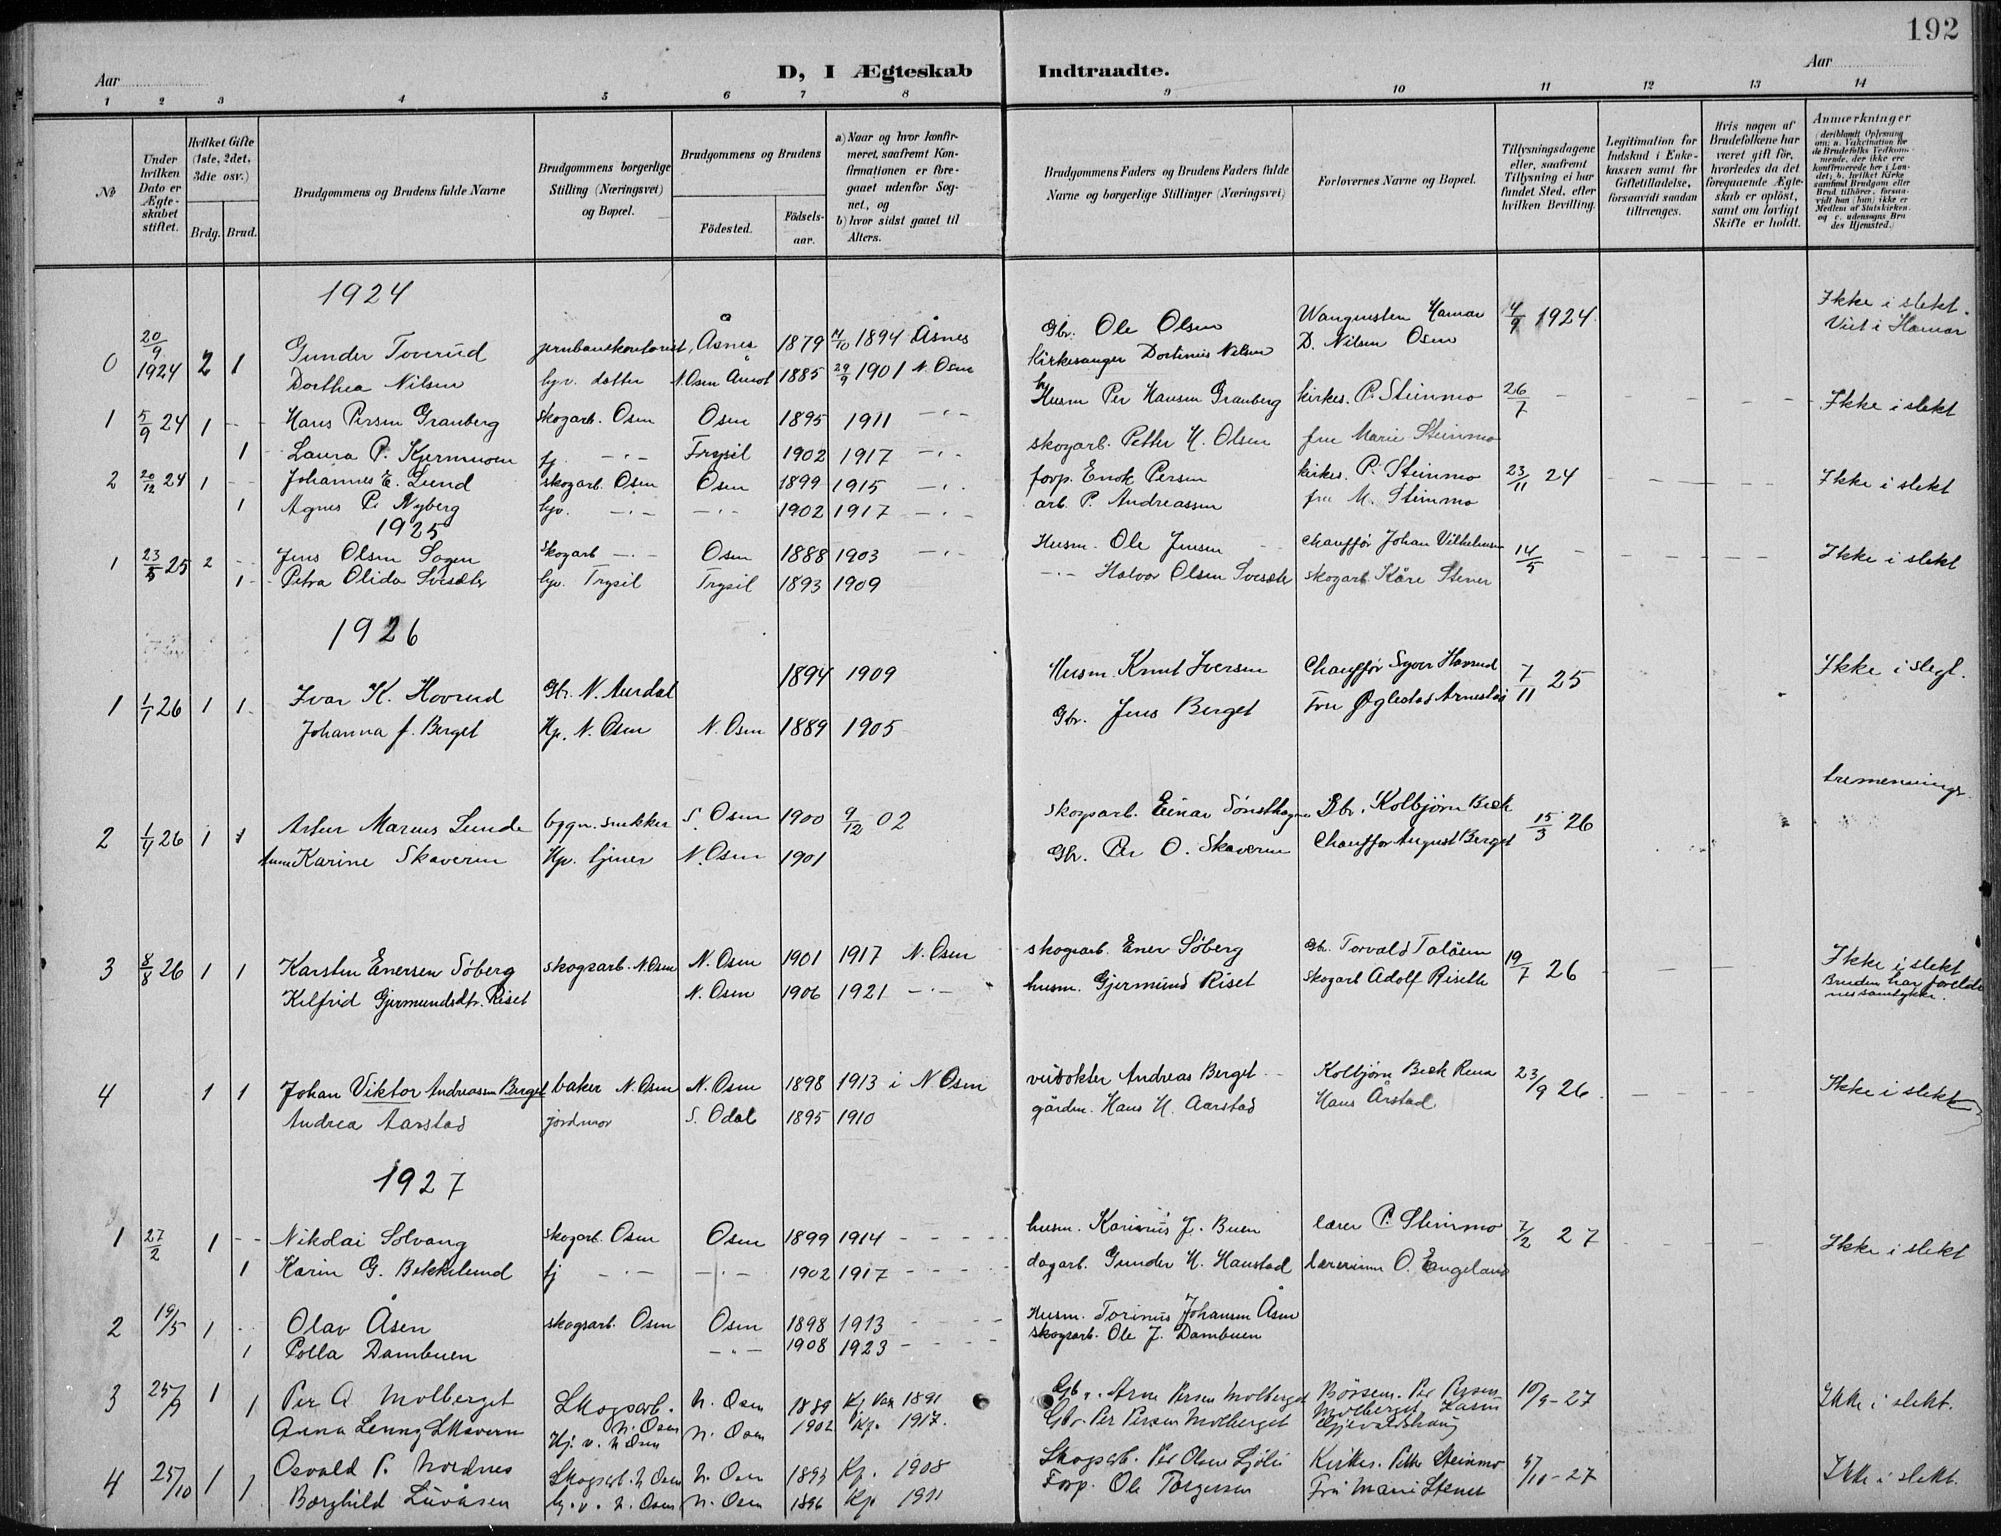 192
Aar
D, I Ægteskab Indtraadte.
Aar
1 2 3 4 5 6 7 8 9 10 11 12 13 14
No
Under hvilken Dato er Ægteskabet stiftet.
Hvilket Gifte (1ste, 2det, 3die osv.)
Brdg. Brud.
Brudgommens og Brudens fulde Navne
Brudgommens borgerlige Stilling (Næringsvei) og Bopæl.
Brudgommens og Brudens
Födested.
Födsels-aar.
a) Naar og hvor konfirmeret, saafremt Konfirmationen er foregaaet udenfor Sognet, og
b) hvor sidst gaaet til Alters.
Brudgommens Faders og Brudens Faders fulde Navne og borgerlige Stillinger (Næringsvei)
Forlovernes Navne og Bopæl.
Tillysningsdagene eller, saafremt Tillysning ei har fundet Sted, efter hvilken Bevilling.
Legitimation for Indskud i Enkekassen samt for Giftetilladelse, forsaavidt saadan tiltrænges.
Hvis nogen af Brudefolkene har været gift för, hvorledes da det foregaaende Ægteskab er oplöst, samt om lovligt Skifte er holdt.
Anmærkninger (deriblandt Oplysning om: a. Vakcination for de Brudefolks Vedkommende, der ikke ere konfirmerede her i Landet; b. hvilket Kirkesamfund Brudgom eller Brud tilhörer, forsaavidt han (hun) ikke er Medlem af Statskirken, og c. udensogns Brudes Hjemsted.)
1924
0 20/9 1924 2 1 Gunder Toverud jernbanekontorist, Åsnes 1879 1894 Åsnes Gbr. Ole Olsen Hamar 4/9 1924 Ikke i slekt. Viet i Hamar
Dorthea Nilsen hjv. datter N. Osen Åmot 1885 29/9 1901 N. Osen Kirkesanger Nilsen D. Nilsen Osen
1 5/9 24 1 - Hans Persen Granberg skogarb. Osen Osen 1895 1911 -"- Husm Per Hansen Granberg kirkes. P. Steinmo 26/7 Ikke i slekt
1 Laura P. Kjermoen hj -"- Trysil 1902 1917 -"- skogarb. Petter H. Olsen fru Marie Steinmo
2 20/12 24 1 - Johannes E. Lund skogarb. Osen Osen 1899 1915 -"- forp. Enok Persen kirkes. P. Steinmo 23/11 24 Ikke i slekt
1 Agnes P. Nyberg hjv. -"- -"- 1902 1917 -"- arb. P. Andreassen fru M. Steinmo
1925
1 23/5 25 2 - Jens Olsen Sogen Skogarb -"- Osen 1888 1903 -"- Husm. Ole Jensen chauffør Johan Vilhelmsen 14/5 Ikke i slekt
1 Petra Olida hjv. Trysil Trysil 1893 1909 -"- Halvor Olsen skogarb Kåre Stener
1926
1 1/1 26 1 1 Ivar K. Hovrud Gbr. N. Aurdal 1894 1909 Husm. Knut Iversen Chauffør Syver Hovrud 7/11 25 Ikke i slegt.
Johanna J. Berget Hp. N. Osen N. Osen 1889 1905 Gbr. Jens Berget Fru Arnestad
2 1/4 26 1 1 Artur Marius Lunde bygn. snekker S. Osen 1900 9/12 02 skogsarb. Einar Gbr. Kolbjørn Bæk 15/3 26 tremenninger.
Karine Skaveren Hp. tjener N. Osen 1901 Gbr. Per O. Skaveren Chauffør August Berget
3 8/8 26 1 1 Karsten Enersen Søberg skogsarb. N. Osen N. Osen 1901 1917 N. Osen skogsarb. Ener Søberg Gbr. Torvald Taläsen 19/7 26 Ikke i slekt
Kilfrid Gjermundsdtr. Riset N. Osen 1906 1921 -"- husm. Gjermund Riset Skogarb Adolf Riseth Bruden har foreldrenes samtykke.
4 1 1 Johan Viktor Andreassen Berget baker N. Osen N. Osen 1898 1913 i N Osen Andreas Berget Kolbjørn Bæk Rena 23/9 26 Ikke i slekt
Andrea Aarstad jordmor S. Odal 1895 1910 gårdm. Hans H. Aarstad Hans Årstad
1927
1 27/2 1 - Nikolai Solvang Skogarb. Osen Osen 1899 1914 husm. Karinius J. Buen lærer P. Steinmo 7/2 27 Ikke i slekt
1 Karin G. Bekkelund hj -"- -"- 1902 1917 dagarb. Gunder H. Haustad lærerinne O. Engeland
2 19/5 1 - Olav Åsen skogsarb. Osen Osen 1898 1913 Husm. Torinus Johansen Åsen
1 Polla Dambuen -"- 1908 1923 skogsarb. Ole J. Dambuen
3 25/9 1 Per A Molberget Skogsarb. N. Osen N. Osen 1889 1891 Gbr. Arne Persen Molberget Per Persen Molberget 10/9-27 Ikke i slekt.
1 Anna Lenny Skavern Hj. v. N Osen N. Osen 1902 Kp. 1917. Gbr Per Persen Molberget Karin
4 25/10 1 Osvald P. Nordnes Skogsarb. N Osen N. Osen 1893 Kp. 1908 Skogsarb. Per Olsen Sjøli Kirkes. Petter Steinmo 5/10-27 Ikke i slekt.
1 Borghild Luvåsen hj. v. N. Osen N. Osen 1896 Kp 1911 Forp. Ole Torgersen Fru Marie Stener